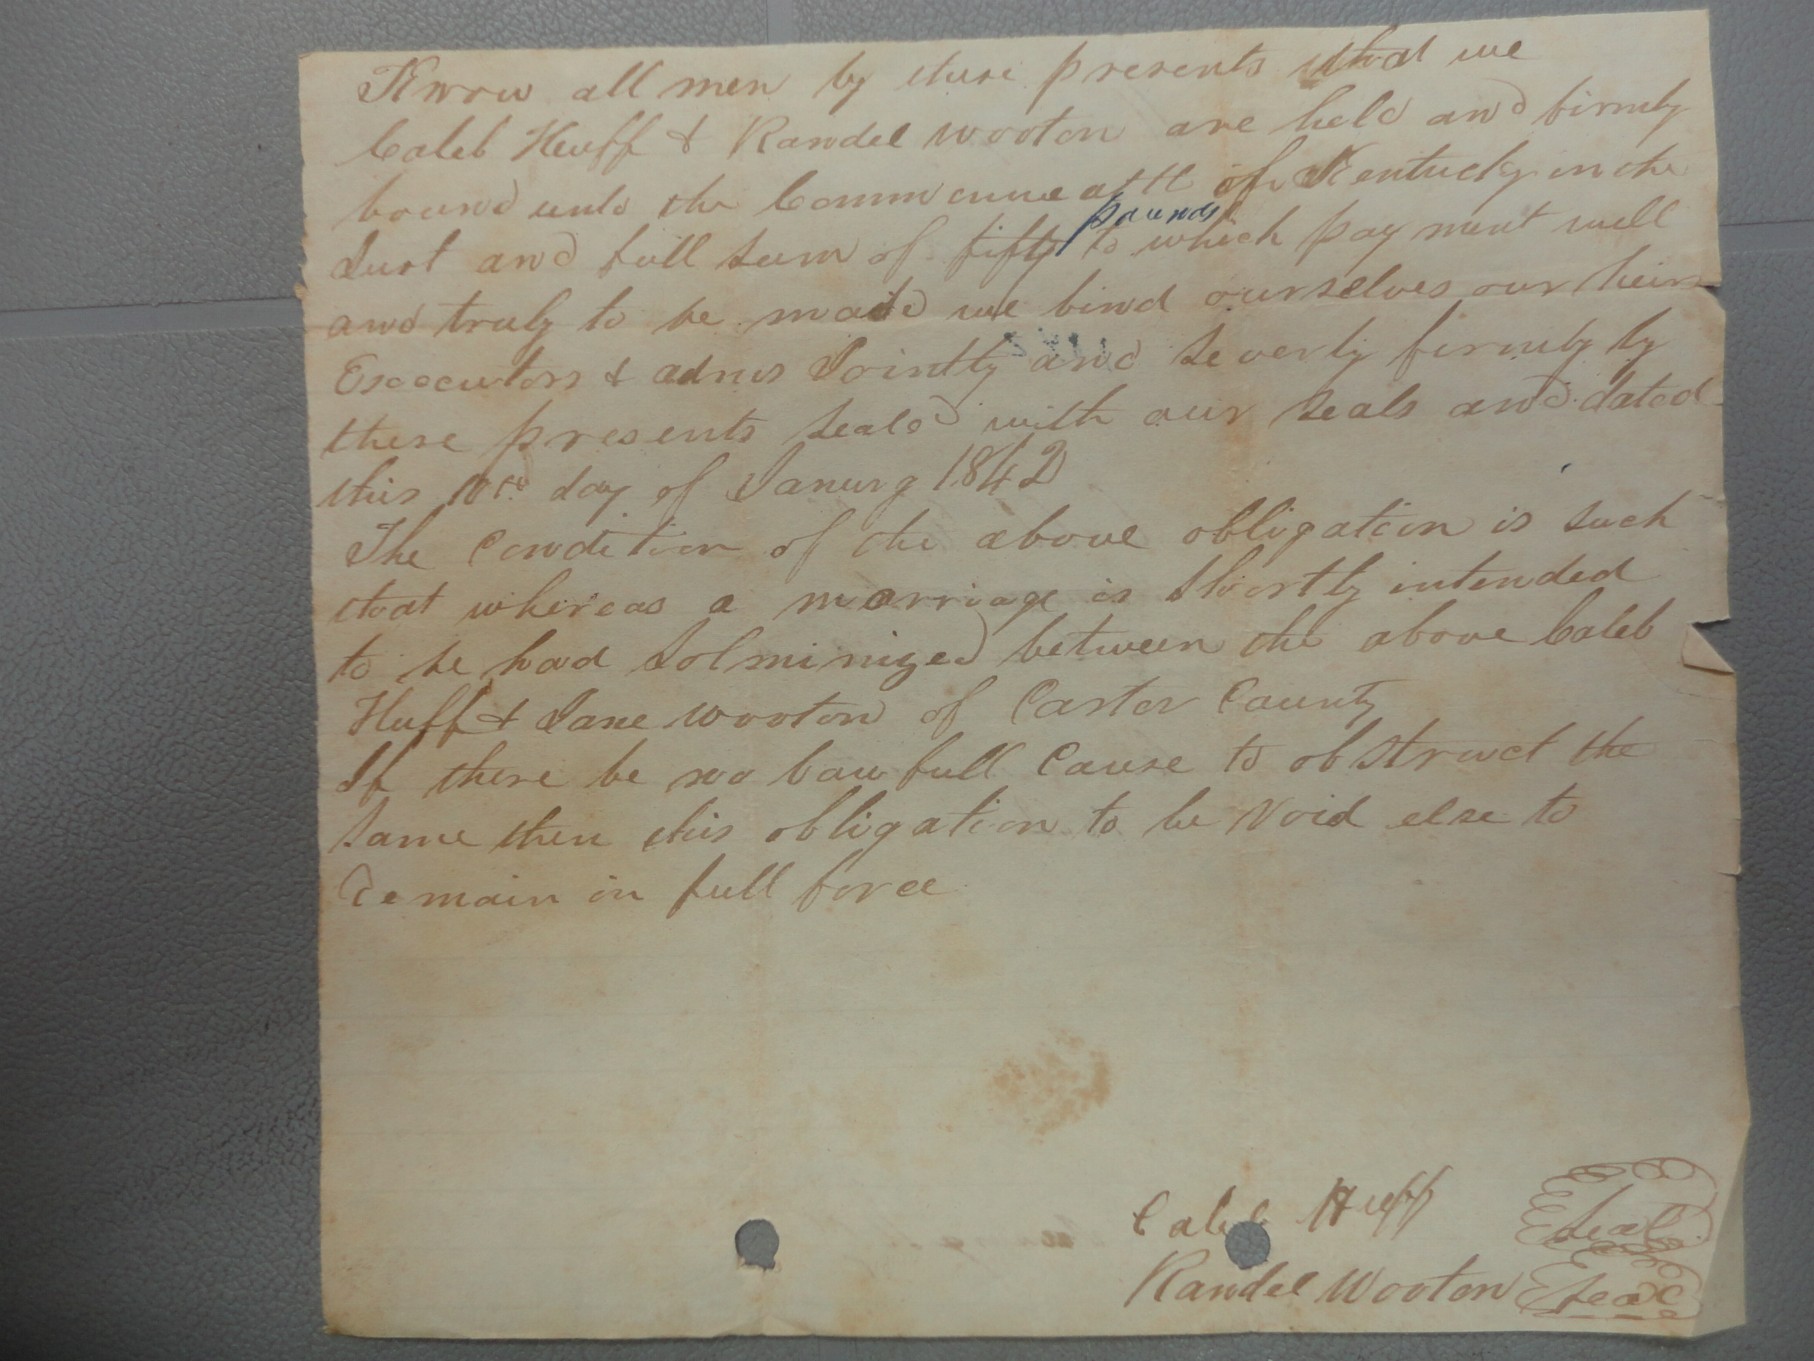 Know all men by these presents that we
Caleb Huff & Randel Wooton are held and firmly
bound unto the Commonwealth of Kentucky in the
Just and full sum of fifty pounds to which pay ment well
and truly to be made we bind ourselves our heirs
Executors & admrs Jointly and severly firmly by
these presents seald with our seals and dated
this 10th day of Janury 1842
The Condition of the above obligation is such
that whereas a marriage is Shortly intended
to be had Solminized between the above Caleb
Huff & Jane Wooton of Carter County
If there be no lawfull Cause to obstruct the
same then this obligation to be Void else to
Remain in full force
Caleb Huff Seal
Randel Wooton Seal